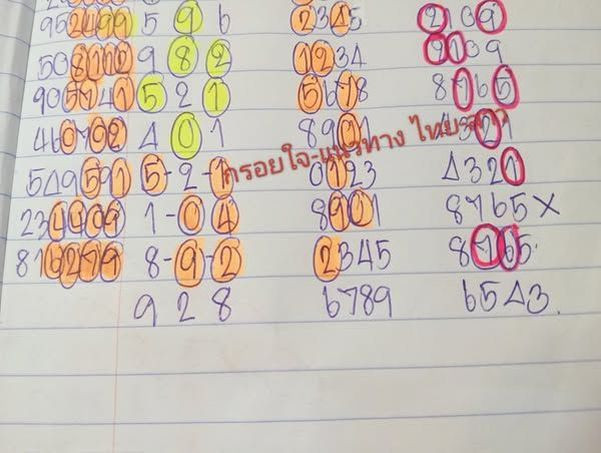 952499 5 9 6 2345 2109
508112 9 8 2 1234 2109
905141 5 2 1 5678 8765
460702 4 0 1 8901
549591 5-2-1 0123 4321
234409 1-0 4 8901 8765 X
816279 8-9-2 2345 8765.
9 2 8 6789 6543.
กรอยใจ-แนวทาง ไทย